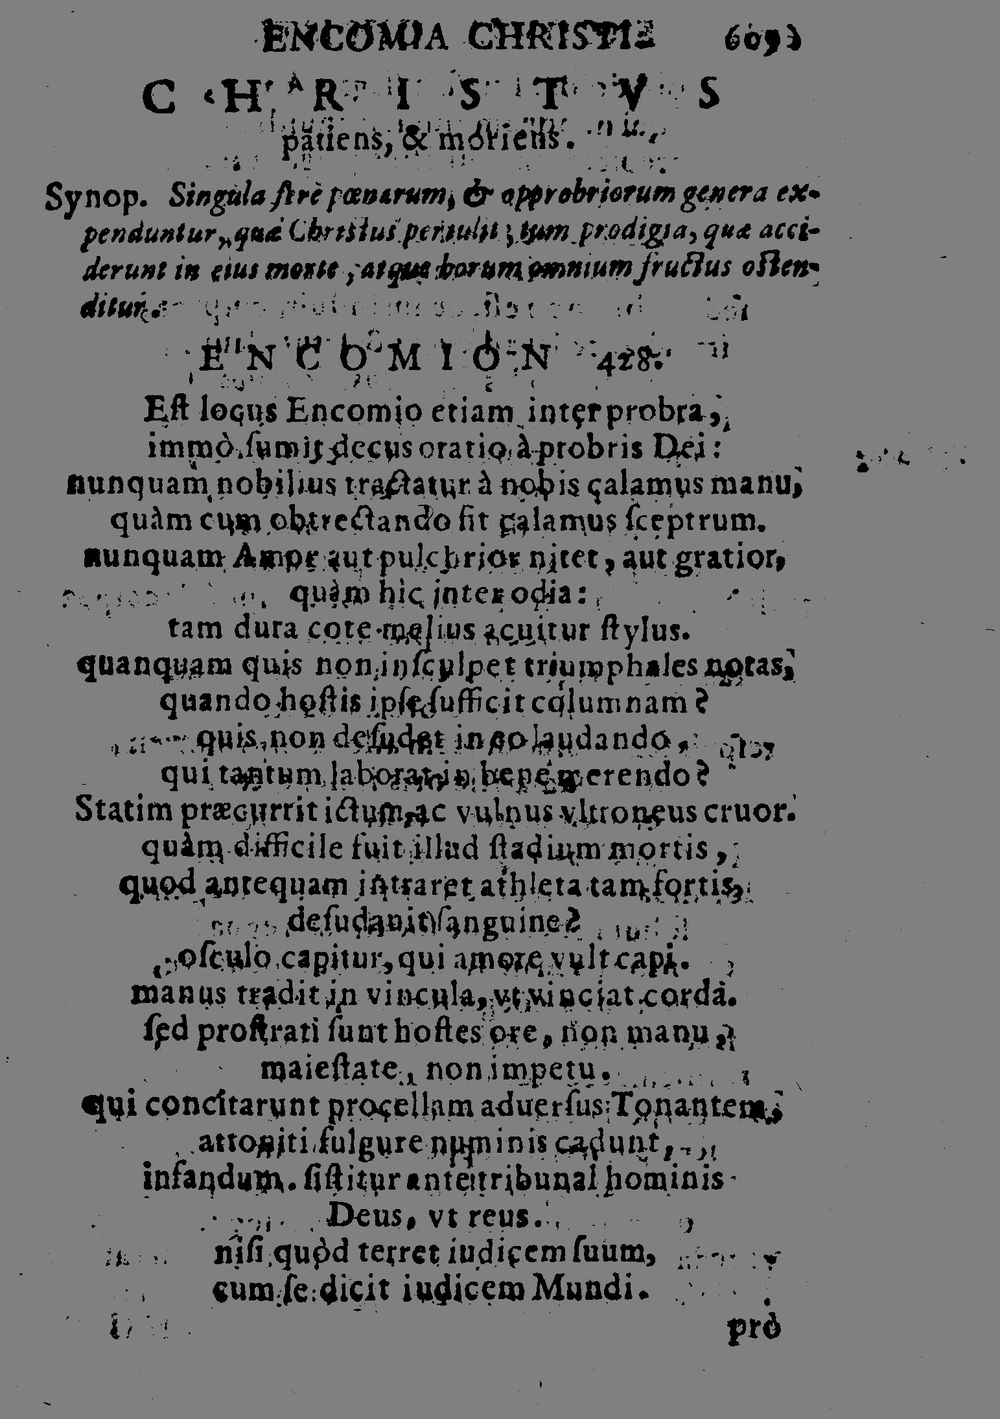 ENCOMIA CHRISTI
CHRISTVS
patiens, & moriens.
Synop. Singula ferè pœnarum, & opprobriorum genera ex-
penduntur, quæ Christus pertulit; tum prodigia, quæ acci-
derunt in eius morte, atque horum omnium fructus osten-
ditur.
ENCOMION 428.
Est locus Encomio etiam inter probra,
immò sumit decus oratio à probris Dei:
nunquam nobilius tractatur à nobis calamus manu,
quàm cum obtrectando fit calamus sceptrum.
nunquam Amor aut pulchrior nitet, aut gratior,
quàm hic inter odia:
tam dura cote melius acuitur stylus.
quanquam quis non insculpet triumphales notas,
quando hostis ipse sufficit columnam?
quis non desudet in eo laudando,
qui tantum laborat in bene merendo?
Statim præcurrit ictum, ac vulnus vltroneus cruor.
quàm difficile fuit illud stadium mortis,
quod antequam intraret athleta tam fortis,
desudauit sanguine?
osculo capitur, qui amore vult capi.
manus tradit in vincula, vt vinciat corda.
sed prostrati sunt hostes ore, non manu,
maiestate, non impetu.
qui concitarunt procellam aduersus Tonantem,
attoniti fulgure numinis cadunt,
infandum. sistitur ante tribunal hominis
Deus, vt reus.
nisi quòd terret iudicem suum,
cum se dicit iudicem Mundi.
prò